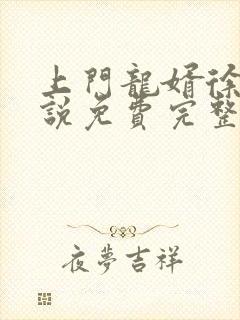 上門龍婿徐
說免費完整
夜夢吉祥